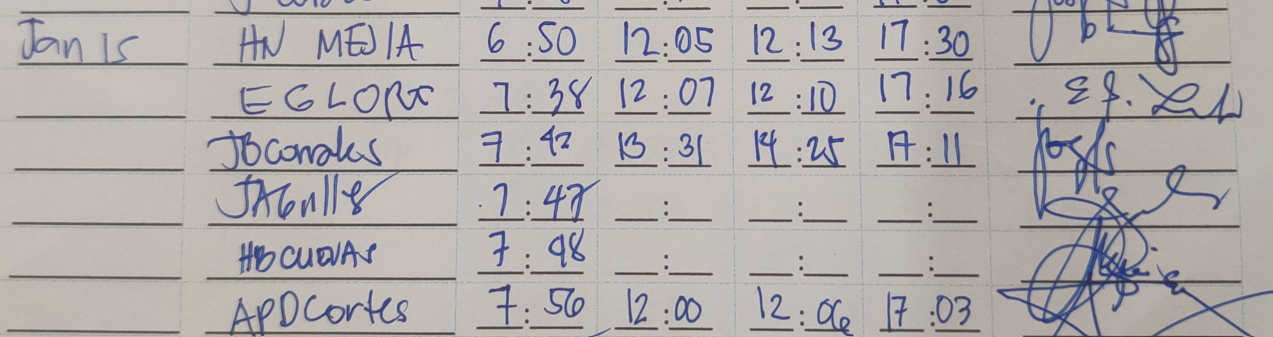 Jan 15 HN MEDIA 6:50 12:05 12:13 17:30
EGLORIA 7:38 12:07 12:10 17:16
JBCorrales 7:42 13:31 14:25 17:11
7:47 __:__ __:__ __:__
HBCUEVAS 7:48 __:__ __:__ __:__
APDCortes 7:56 12:00 12:06 17:03